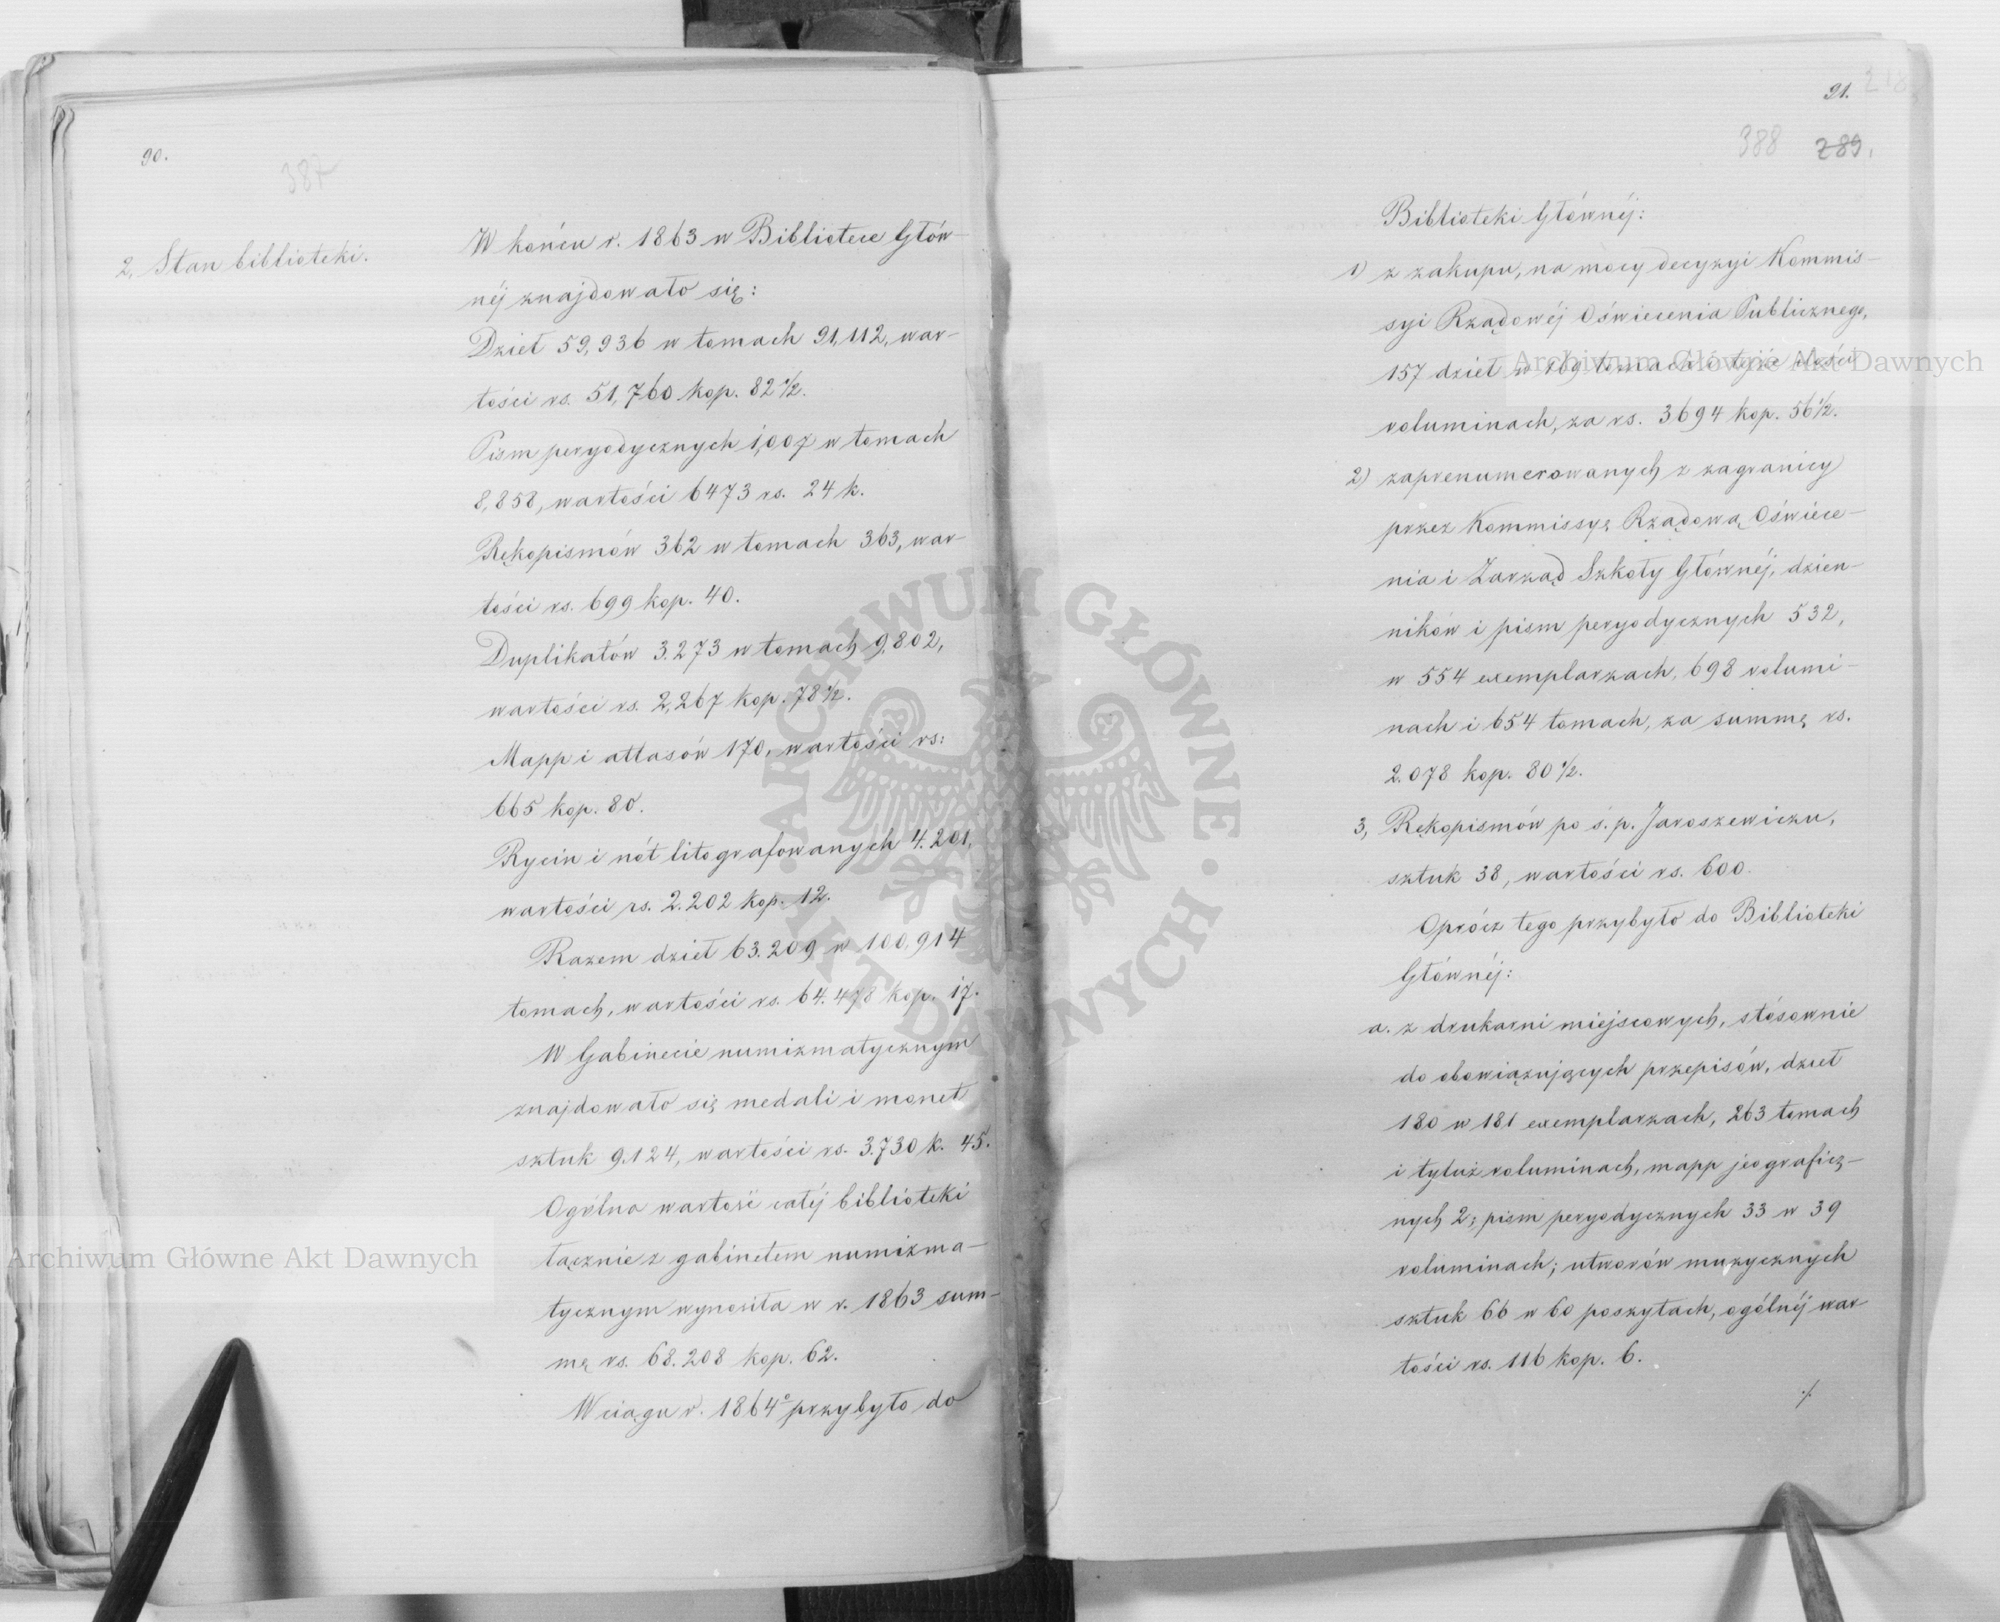 90.
387
2, Stan biblioteki.
W końcu r. 1863 w Bibliotece Głów-
néj znajdowało się:
Dzieł 59,936 w tomach 91,112, war-
tości rs. 51,760 kop. 82 1/2.
Pism peryodycznych 1,007 w tomach
8,858, wartości 6473 rs. 24 k.
Rękopismów 362 w tomach 363, war-
tości rs. 699 kop. 40.
Duplikatów 3.273 w tomach 9,802,
wartości rs. 2,267 kop. 78 1/2.
Mapp i atlasów 170, wartości rs:
665 kop. 80.
Rycin i nót litografowanych 4.201,
wartości rs. 2.202 kop. 12.
Razem dzieł 63.209 w 100,914
tomach, wartości rs. 64.478 kop. 17.
W Gabinecie numizmatycznym
znajdowało się medali i monet
sztuk 9.124, wartości rs. 3.730 k. 45.
Ogólna wartość całéj biblioteki
łącznie z gabinetem numizma-
tycznym wynosiła w r. 1863 sum-
mę rs. 68.208 kop. 62.
W ciągu r. 1864° przybyło do
91.
388 289.
Biblioteki Głównéj:
1) z zakupu, na mocy decyzyi Kommis-
syi Rządowéj Oświecenia Publicznego,
157 dzieł w 169 tomach i tyleż
voluminach, za rs. 3694 kop. 56 1/2.
2) zaprenumerowanych z zagranicy
przez Kommissyę Rządową Oświece-
nia i Zarząd Szkoły Głównéj, dzien-
ników i pism peryodycznych 532,
w 554 exemplarzach, 698 volumi-
nach i 654 tomach, za summę rs.
2.078 kop. 80 1/2.
3, Rękopismów po ś. p. Jaroszewiczu,
sztuk 38, wartości rs. 600.
Oprócz tego przybyło do Biblioteki
Głównéj:
a. z drukarni miejscowych, stósownie
do obowiązujących przepisów, dzieł
180 w 181 exemplarzach, 263 tomach
i tyluż voluminach, mapp jeograficz-
nych 2; pism peryodycznych 33 w 39
voluminach; utworów muzycznych
sztuk 66 w 60 poszytach, ogólnéj war-
tości rs. 116 kop. 6.
./.
Archiwum Główne Akt Dawnych
Archiwum Główne Akt Dawnych
ARCHIWUM GŁÓWNE · AKT DAWNYCH ·